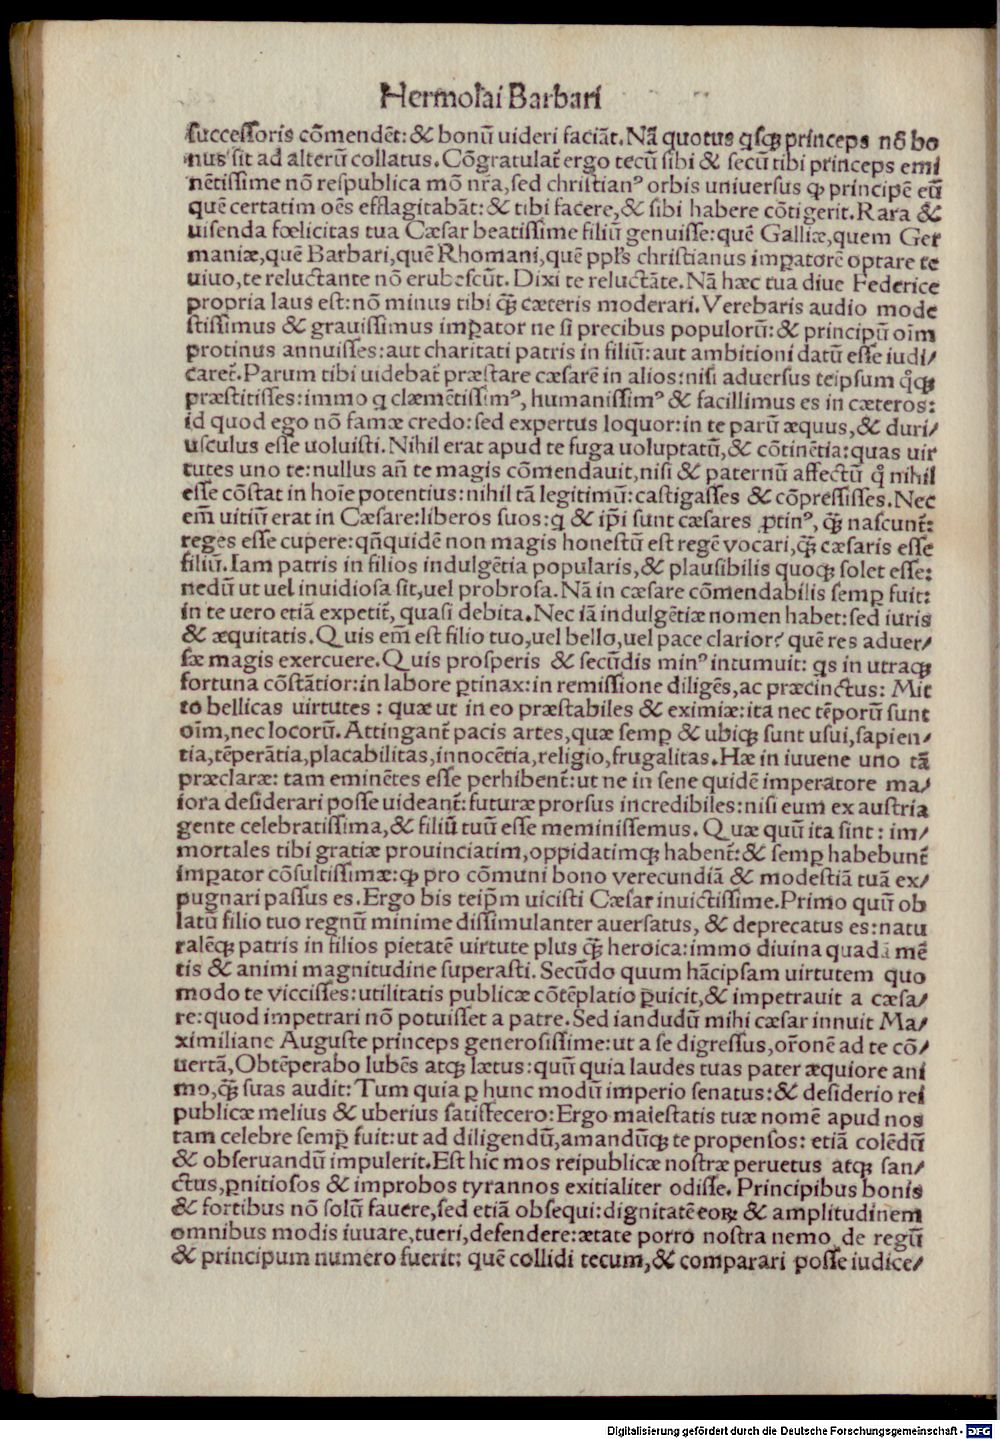 Hermolai Barbari
successoris cōmendēt: & bonū uideri faciāt. Nā quotus qsq; princeps nō bo
nus sit ad alterū collatus. Cōgratulat̄ ergo tecū sibi & secū tibi princeps emi
nētissime nō respublica mō nr̄a, sed christianꝰ orbis uniuersus ꝙ principē eū
quē certatim oēs efflagitabāt: & tibi facere, & sibi habere cōtigerit. Rara &
uisenda fœlicitas tua Cæsar beatissime filiū genuisse: quē Galliæ, quem Ger
maniæ, quē Barbari, quē Rhomani, quē ppl's christianus imꝑatorē optare te
uiuo, te reluctante nō erubescūt. Dixi te reluctāte. Nā hæc tua diue Federice
propria laus est: nō minus tibi q̄ꝫ cæteris moderari. Verebaris audio mode
stissimus & grauissimus imꝑator ne si precibus populorū: & principū oīm
protinus annuisses: aut charitati patris in filiū: aut ambitioni datū esse iudi/
caret̄. Parum tibi uidebat̄ præstare cæsarē in alios: nisi aduersus teipsum qͦq;
præstitisses: immo q clæmētissimꝰ, humanissimꝰ & facillimus es in cæteros:
id quod ego nō famæ credo: sed expertus loquor: in te parū æquus, & duri/
usculus esse uoluisti. Nihil erat apud te fuga uoluptatū, & cōtinētia: quas uir
tutes uno te: nullus añ te magis cōmendauit, nisi & paternū affectū qͦ nihil
esse cōstat in hoīe potentius: nihil tā legitimū: castigasses & cōpressisses. Nec
em̄ uitiū erat in Cæsare: liberos suos: q & ip̄i sunt cæsares ꝓtinꝰ, q̄ꝫ nascunt̄:
reges esse cupere: qñquidē non magis honestū est regē vocari, q̄ꝫ cæsaris esse
filiū. Iam patris in filios indulgētia popularis, & plausibilis quoq; solet esse:
nedū ut uel inuidiosa sit, uel probrosa. Nā in cæsare cōmendabilis semꝑ fuit:
in te uero etiā expetit̄, quasi debita. Nec iā indulgētiæ nomen habet: sed iuris
& æquitatis. Quis em̄ est filio tuo, uel bello, uel pace clarior? quē res aduer/
sæ magis exercuere. Quis prosperis & secūdis minꝰ intumuit: qs in utraq;
fortuna cōstātior: in labore ꝑtinax: in remissione diligēs, ac præcinctus: Mit
to bellicas uirtutes : quæ ut in eo præstabiles & eximiæ: ita nec tēporū sunt
oīm, nec locorū. Attingant̄ pacis artes, quæ semꝑ & ubiq; sunt usui, sapien/
tia, tēperātia, placabilitas, innocētia, religio, frugalitas. Hæ in iuuene uno tā
præclaræ: tam eminētes esse perhibent̄: ut ne in sene quidē imperatore ma/
iora desiderari posse uideant̄: futuræ prorsus incredibiles: nisi eum ex austria
gente celebratissima, & filiū tuū esse meminissemus. Quæ quū ita sint: im/
mortales tibi gratiæ prouinciatim, oppidatimq; habent̄: & semꝑ habebunt̄
imꝑator cōsultissimæ: ꝙ pro cōmuni bono verecundiā & modestiā tuā ex/
pugnari passus es. Ergo bis teip̄m uicisti Cæsar inuictissime. Primo quū ob
latū filio tuo regnū minime dissimulanter auersatus, & deprecatus es: natu
ralēq; patris in filios pietatē uirtute plus q̄ꝫ heroica: immo diuina quadā mē
tis & animi magnitudine superasti. Secūdo quum hācipsam uirtutem quo
modo te viccisses: utilitatis publicæ cōtēplatio ꝑuicit, & impetrauit a cæsa/
re: quod impetrari nō potuisset a patre. Sed iandudū mihi cæsar innuit Ma/
ximiliane Auguste princeps generosissime: ut a se digressus, or̄onē ad te cō/
uertā, Obtēperabo lubēs atq; lætus: quū quia laudes tuas pater æquiore ani
mo, q̄ꝫ suas audit: Tum quia ꝑ hunc modū imperio senatus: & desiderio rei
publicæ melius & uberius satisfecero: Ergo maiestatis tuæ nomē apud nos
tam celebre semꝑ fuit: ut ad diligendū, amandūq; te propensos: etiā colēdū
& obseruandū impulerit. Est hic mos reipublicæ nostræ peruetus atq; san/
ctus, ꝑnitiosos & improbos tyrannos exitialiter odisse. Principibus bonis
& fortibus nō solū fauere, sed etiā obsequi: dignitatē eoꝝ & amplitudinem
omnibus modis iuuare, tueri, defendere: ætate porro nostra nemo de regū
& principum numero fuerit: quē collidi tecum, & comparari posse iudice/
Digitalisierung gefördert durch die Deutsche Forschungsgemeinschaft - DFG